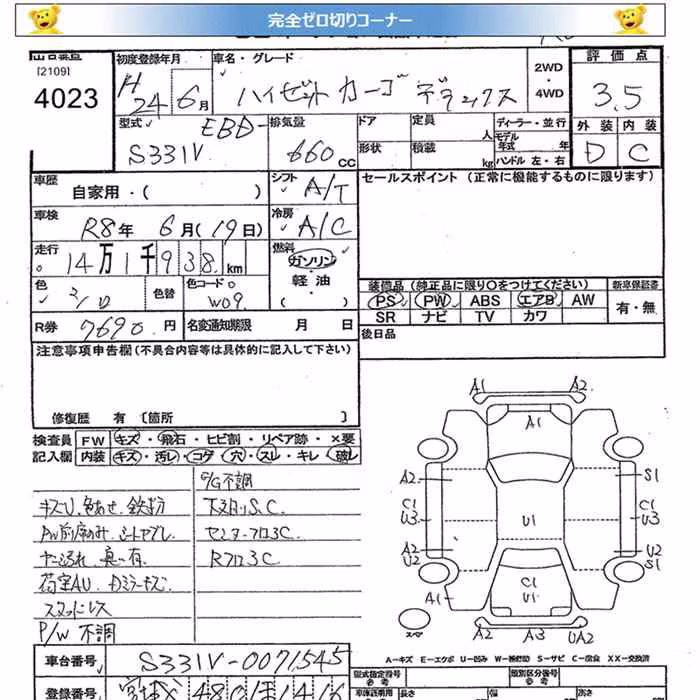 完全ゼロ切りコーナー
出品番号
[2109]
4023
初度登録年月
H24年 6月
車名・グレード
ハイゼットカーゴ デラックス
2WD
・
4WD
評価点
3.5
外装 内装
D C
型式
EBD-
S331V
排気量
660 CC
ドア
形状
定員 人
積載 kg
ディーラー・並行
モデル年式 年
ハンドル 左・右
車歴
自家用・( )
シフト
A/T
セールスポイント (正常に機能するものに限ります)
車検
R8年 6月(19日)
冷房
A/C
走行
14万1千938 km
燃料
ガソリン
・
軽油
・
( )
色
色替
色コード
W09
装備品 (純正品に限り○をつけてください)
新車保証書
PS PW ABS エアB AW
SR ナビ TV カワ
有・無
R券 7690円
名変通知期限 月 日
後日品
注意事項申告欄(不具合内容等は具体的に記入して下さい)
修復歴 有 [箇所 ]
検査員記入欄
FW キズ・飛石・ヒビ割・リペア跡・×要
内装 キズ・汚レ・コゲ・穴・スレ・キレ・破レ
キズU、色あせ、鉄粉
荷室AU、Dミラーキズ
スタッドレス
P/W 不調
P/G不調
下廻りS.C.
センターフロ3C
Rフロ3C
A1 A2
A1
A2 S1
C1 C1
U3 U1 U3
A2 U2
U2 S1
C1
U1
A1
スペア
A2 A3 UA2
A-キズ E-エクボ U-凹み W-補修跡 S-サビ C-腐食 XX-交換済
車台番号 S331V-0071545
登録番号
型式指定番号
類別区分番号
参考
長さ
幅
高さ